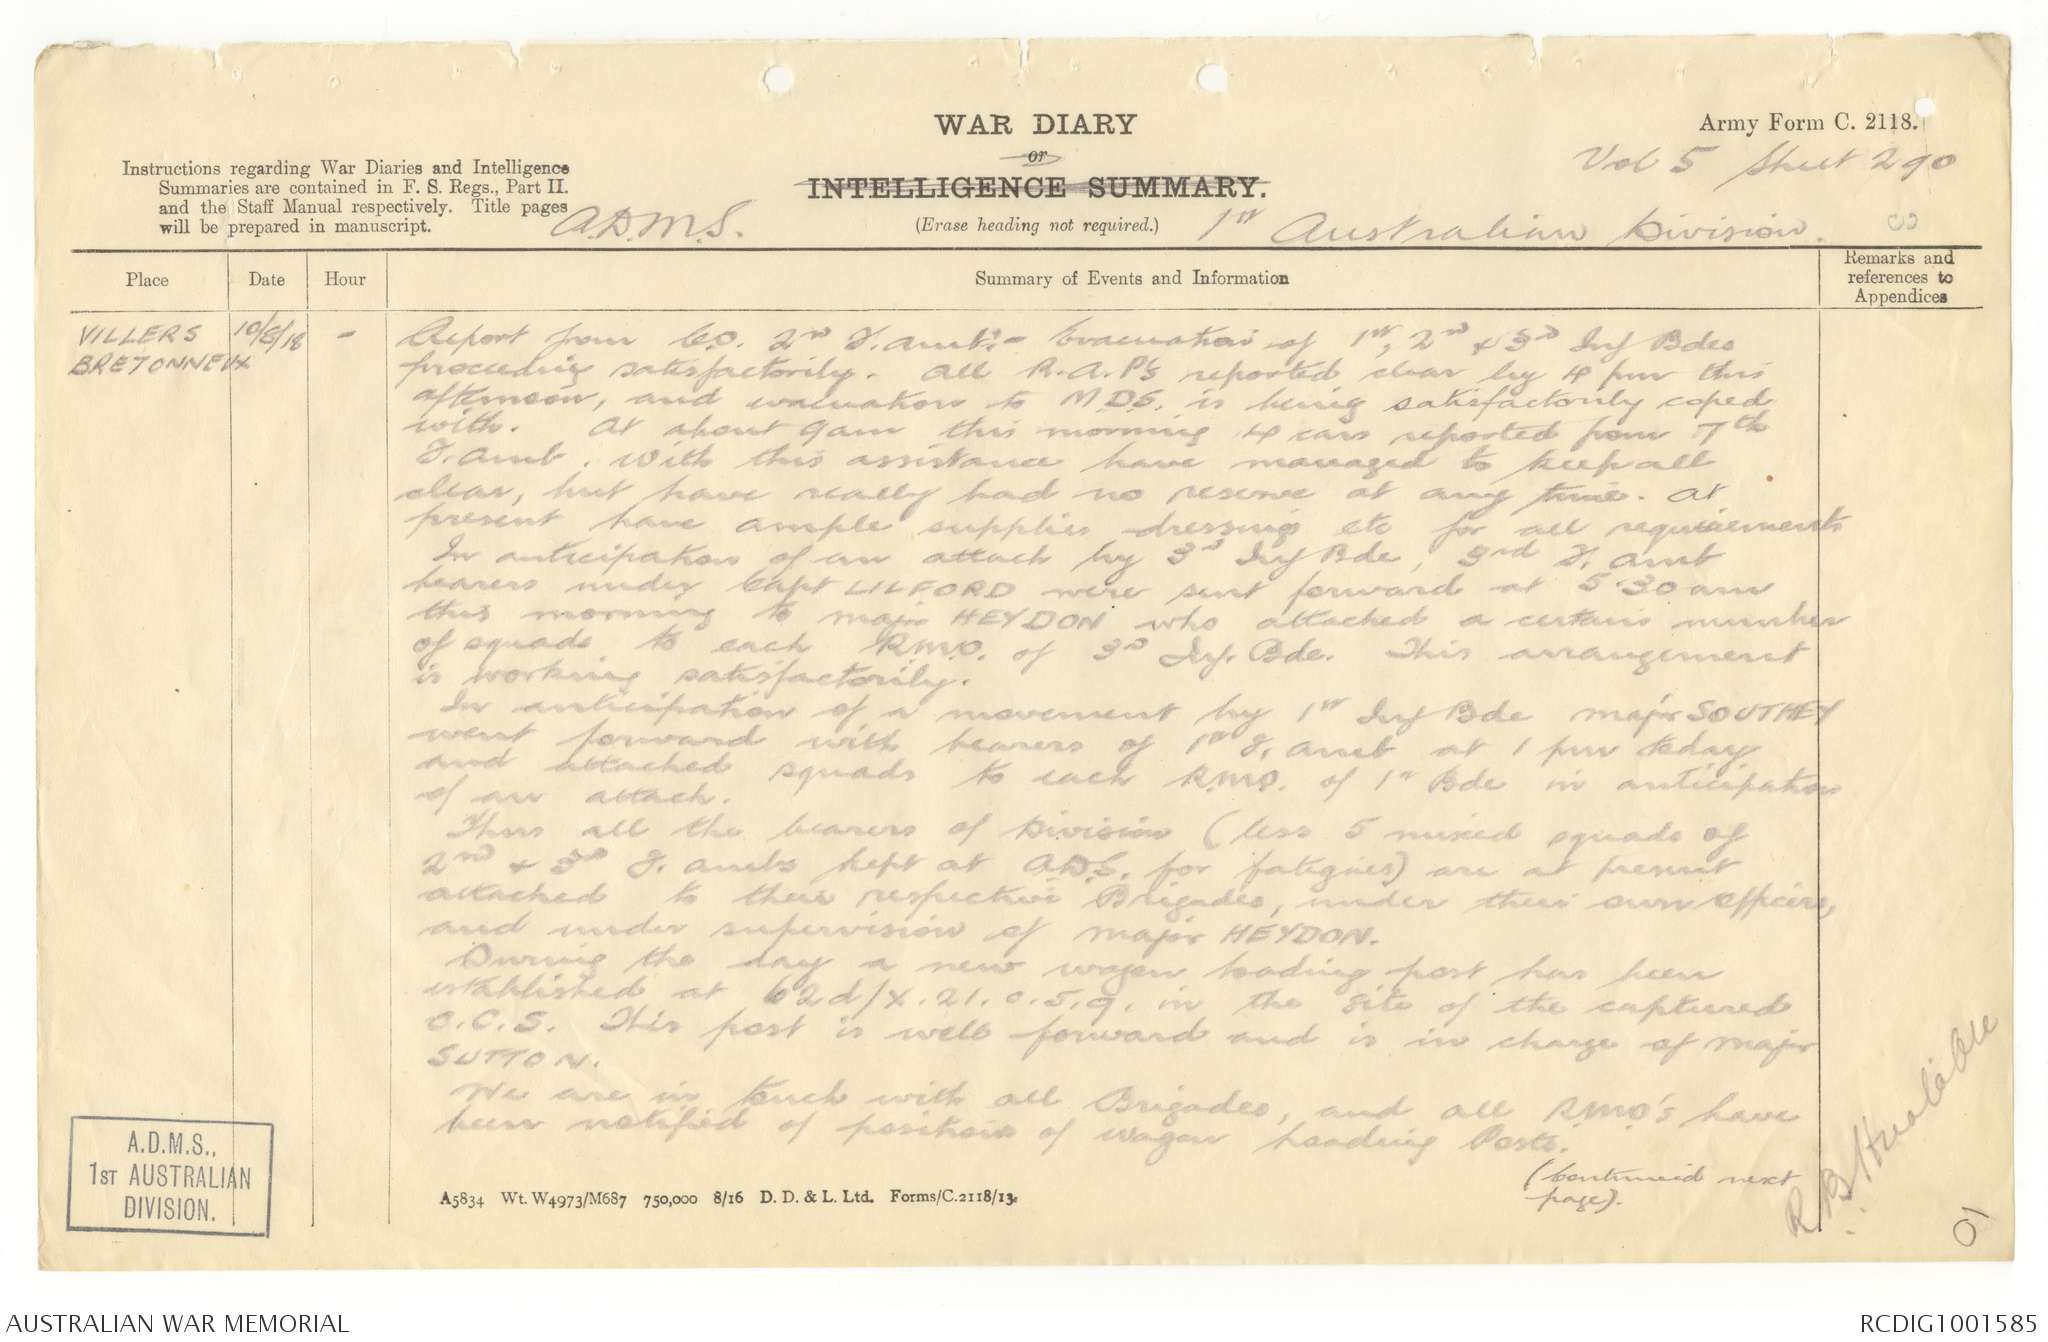 WAR DIARY
or
INTELLIGENCE SUMMARY.
(Erase heading not required.)
Army Form C. 2118.
Vol 5 Sheet 290
Instructions regarding War Diaries and Intelligence
Summaries are contained in F. S. Regs., Part II.
and the Staff Manual respectively. Title pages
will be prepared in manuscript.
A.D.M.S.
1st Australian Division.
Place
Date
Hour
Summary of Events and Information
Remarks and
references to
Appendices
VILLERS
BRETONNEUX
10/8/18
-
Report from C.O. 2nd F. Amb:- Evacuation of 1st, 2nd & 3rd Inf Bdes
proceeding satisfactorily. All R.A.P's reported clear by 4 pm this
afternoon, and evacuation to M.D.S. is being satisfactorily coped
with. At about 9am this morning 4 cars reported from 7th
F. Amb. With this assistance have managed to keep all
clear, but have really had no reserve at any time. At
present have ample supplies dressings etc for all requirements
In anticipation of an attack by 3rd Inf Bde, 3rd F. Amb
bearers under Capt LILFORD were sent forward at 5.30 am
this morning to Major HEYDON who attached a certain number
of squads to each R.M.O. of 3rd Inf. Bde. This arrangement
is working satisfactorily.
In anticipation of a movement by 1st Inf Bde Major SOUTHEY
went forward with bearers of 1st F. Amb at 1 pm today
and attached squads to each R.M.O. of 1st Bde in anticipation
of an attack.
Thus all the bearers of Division (less 5 mixed squads of
2nd & 3rd F. Ambs kept at A.D.S. for fatigues) are at present
attached to their respective Brigades, under their own officers,
and under supervision of Major HEYDON.
During the day a new wagon loading post has been
established at 62d/X.21.c.5.9. in the site of the captured
C.C.S. This post is well forward and is in charge of Major
SUTTON.
We are in touch with all Brigades, and all R.M.O's have
been notified of position of wagon loading Posts.
(Continued next
page).
A.D.M.S.,
1ST AUSTRALIAN
DIVISION.
A5834 Wt. W4973/M687 750,000 8/16 D. D. & L. Ltd. Forms/C.2118/13.
10
AUSTRALIAN WAR MEMORIAL
RCDIG1001585